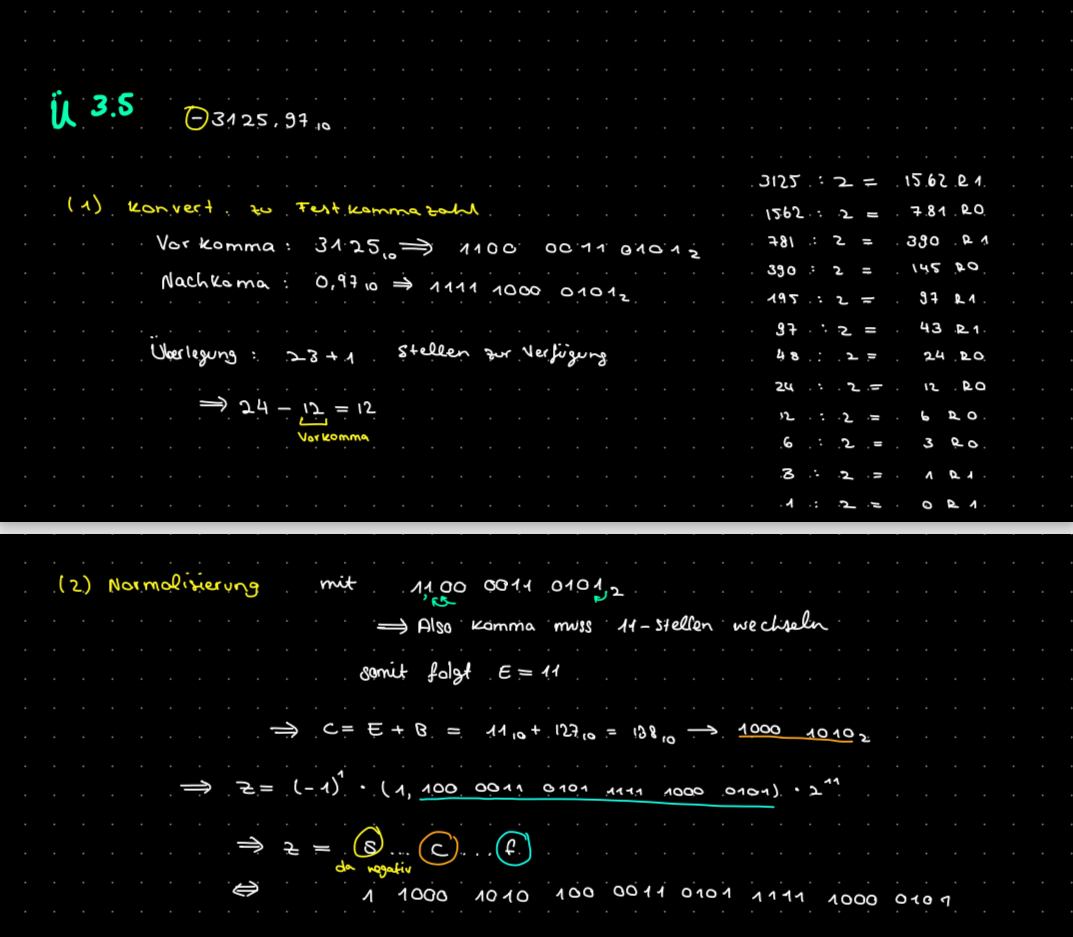 Ü 3.5 −3125,97₁₀
(1) Konvert. zu Festkommazahl
Vorkomma: 3125₁₀ ⇒ 1100 0011 0101₂
Nachkoma: 0,97₁₀ ⇒ 1111 1000 0101₂
Überlegung: 23+1 Stellen zur Verfügung
⇒ 24 − 12 = 12
Vorkomma
3125 : 2 = 1562 R1
1562 : 2 = 781 R0
781 : 2 = 390 R1
390 : 2 = 145 R0
195 : 2 = 97 R1
97 : 2 = 43 R1
48 : 2 = 24 R0
24 : 2 = 12 R0
12 : 2 = 6 R0
6 : 2 = 3 R0
3 : 2 = 1 R1
1 : 2 = 0 R1
(2) Normalisierung mit 1100 0011 0101,₂
⇒ Also Komma muss 11-Stellen wechseln
somit folgt E = 11
⇒ C = E + B = 11₁₀ + 127₁₀ = 138₁₀ → 1000 1010₂
⇒ Z = (-1)¹ · (1, 100 0011 0101 1111 1000 0101) · 2¹¹
⇒ z = s ... c ... f
da negativ
⇔ 1 1000 1010 100 0011 0101 1111 1000 0101